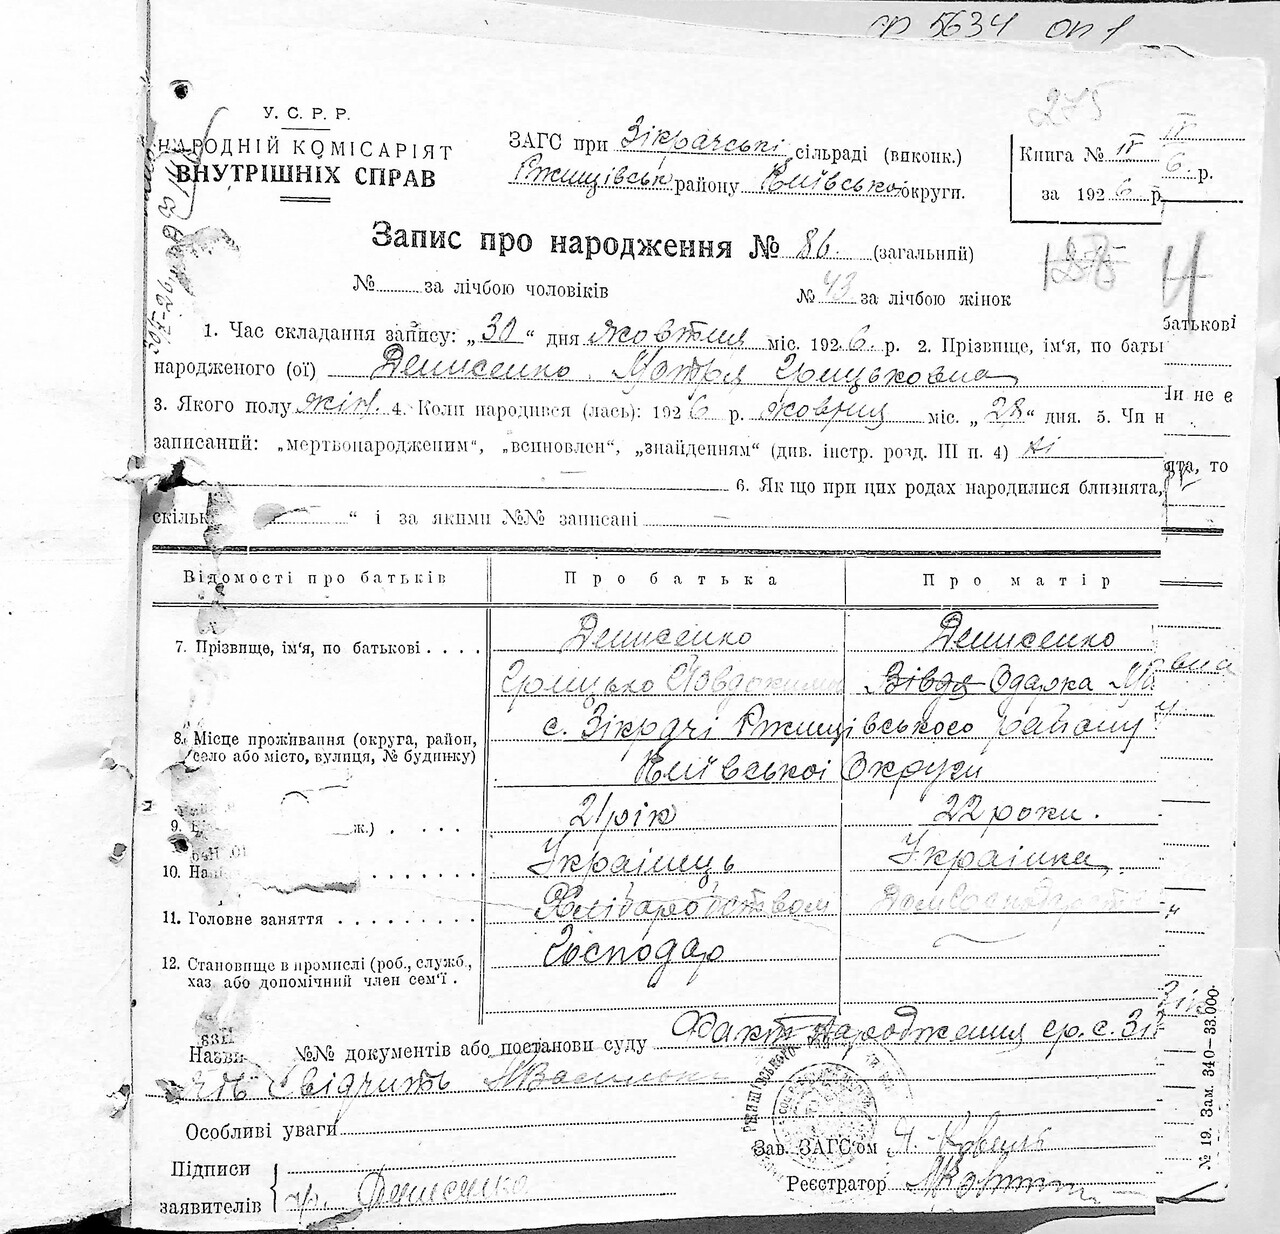 ф 5634 оп 1
275
У. С. Р. Р.
НАРОДНІЙ КОМІСАРІЯТ
ВНУТРІШНІХ СПРАВ
ЗАГС при Зікрачські сільраді (виконк.)
Ржищівськ району Київсько округи.
Книга № IV
за 1926 р.
IV
6. р.
Запис про народження № 86. (загальний)
№ за лічбою чоловіків
№ 43 за лічбою жінок
1. Час складання запису: „30“ дня жовтня міс. 1926. р. 2. Прізвище, ім'я, по баты
батькові
народженого (ої) Денисенко Мотря Грицьковна
3. Якого полу жін. 4. Коли народився (лась): 1926 р. жовтня міс. „28“ дня. 5. Чи н
Чи не є
записаний: „мертвонародженим“, „всиновлен“, „знайденям“ (див. інстр. розд. III п. 4) ні
6. Як що при цих родах народилися близнята,
ята, то
скільк “ і за якими №№ записані
Відомості про батьків Про батька Про матір
7. Прізвище, ім'я, по батькові . . . . Денисенко Денисенко
Грицько Овдокимо Одарка
вна
8. Місце проживання (округа, район, село або місто, вулиця, № будинку) с. Зікрачі Ржищівського району
Київської Округи
9. ж.) . . . . 21 рік 22 роки.
10. На . . . . . . . Українець Українка
11. Головне заняття . . . . . . . . . Хліборобством
12. Становище в промислі (роб., служб., Господар
хаз. або допомічний член сем'ї .
Назви №№ документів або постанови суду Факт народження гр. с. Зі
свідчить
Особливі уваги
Зав. ЗАГС'ом
Підписи
заявителів гр. Денисенко
Реєстратор
№ 19. Зам. 340—33.000.